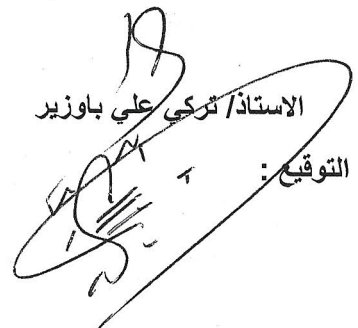 الاستاذ/ تركي علي باوزير
التوقيع :